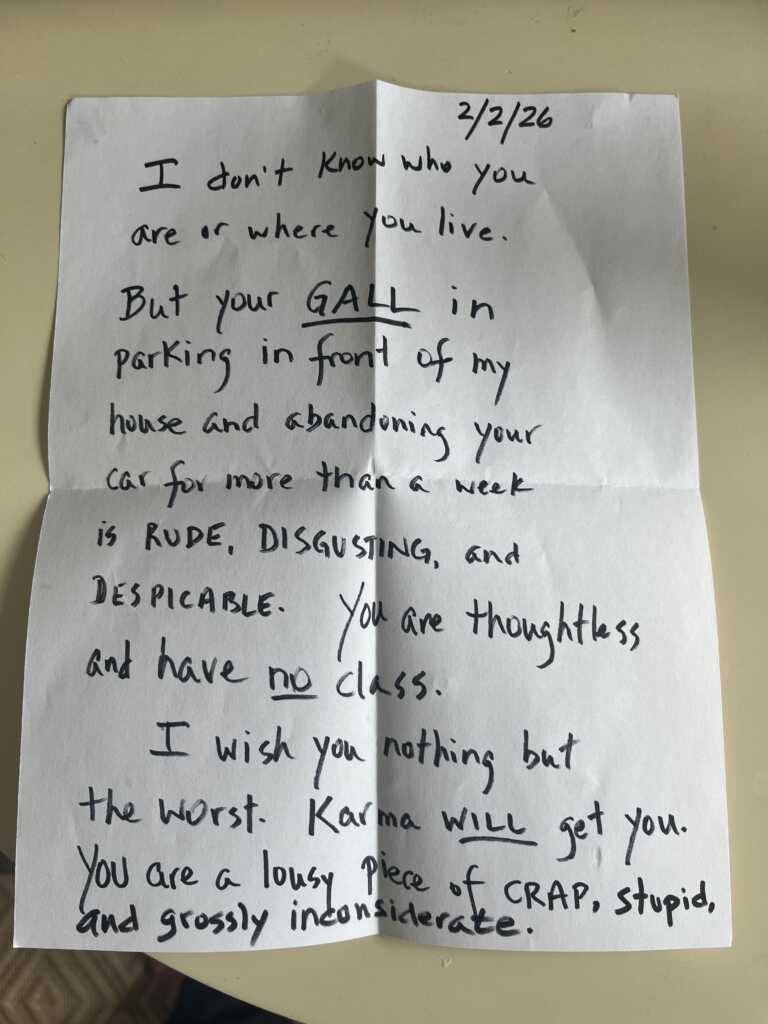 2/2/26
I don't know who you
are or where you live.
But your GALL in
parking in front of my
house and abandoning your
car for more than a week
is RUDE, DISGUSTING, and
DESPICABLE. You are thoughtless
and have no class.
I wish you nothing but
the worst. Karma WILL get you.
You are a lousy piece of CRAP, stupid,
and grossly inconsiderate.